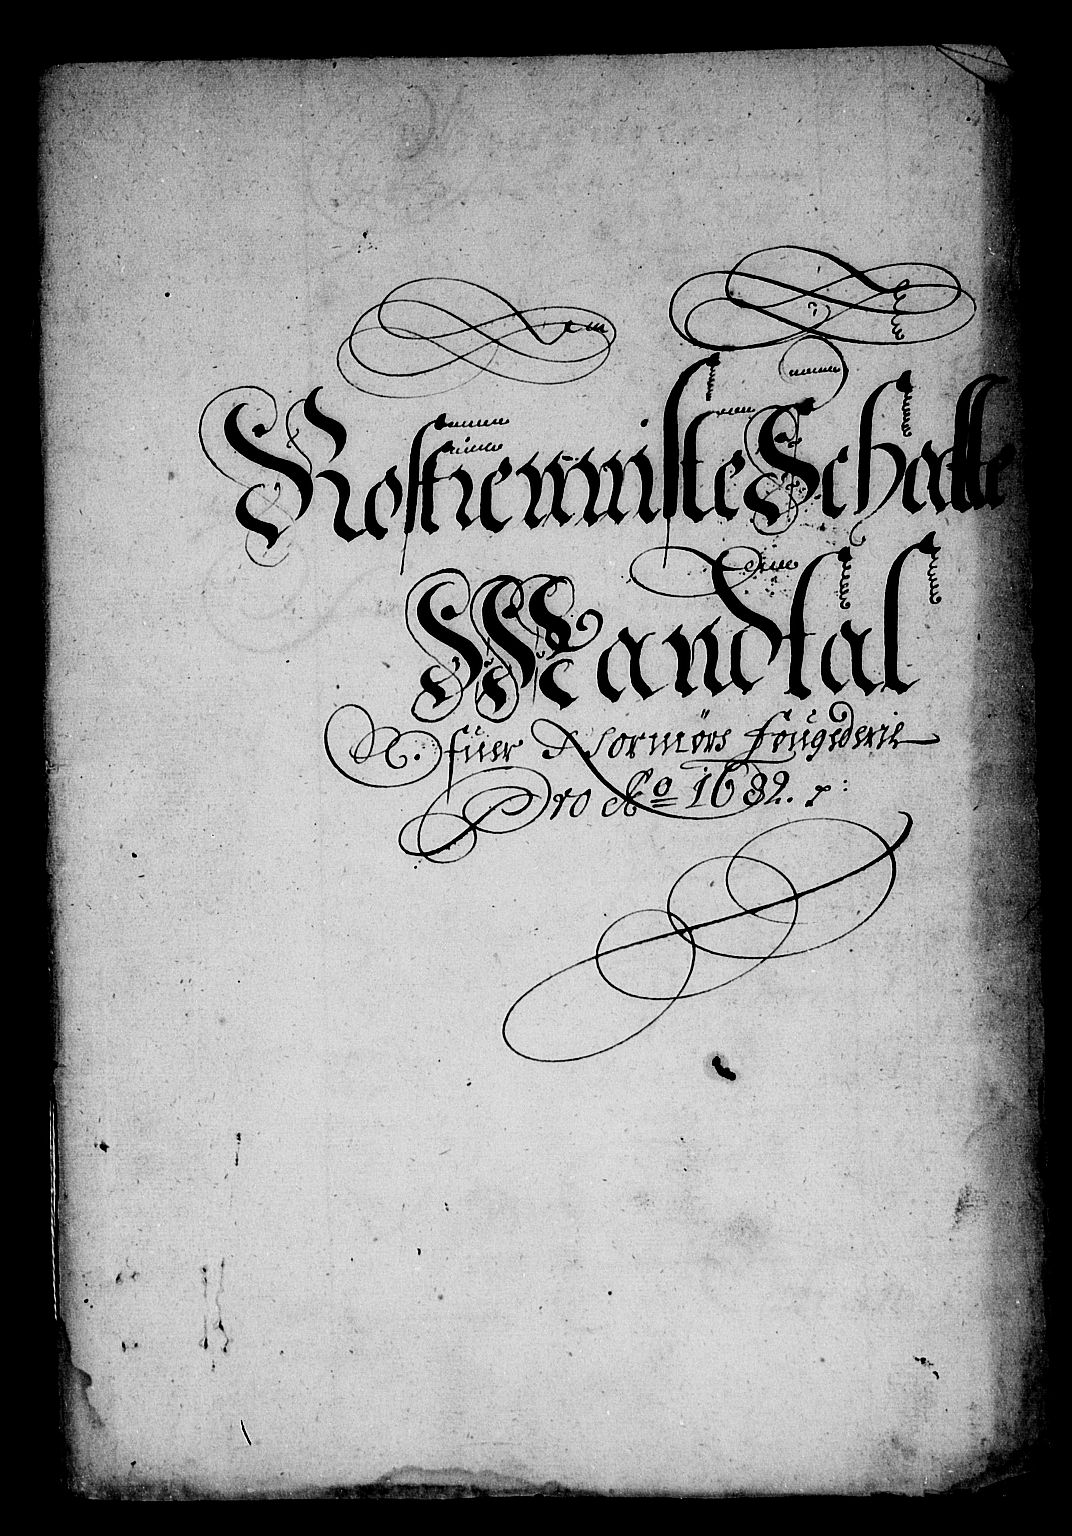 Rostienniste Schatte
Mandtal
A. füer Normörs fougederie
Pro Ao 1682.